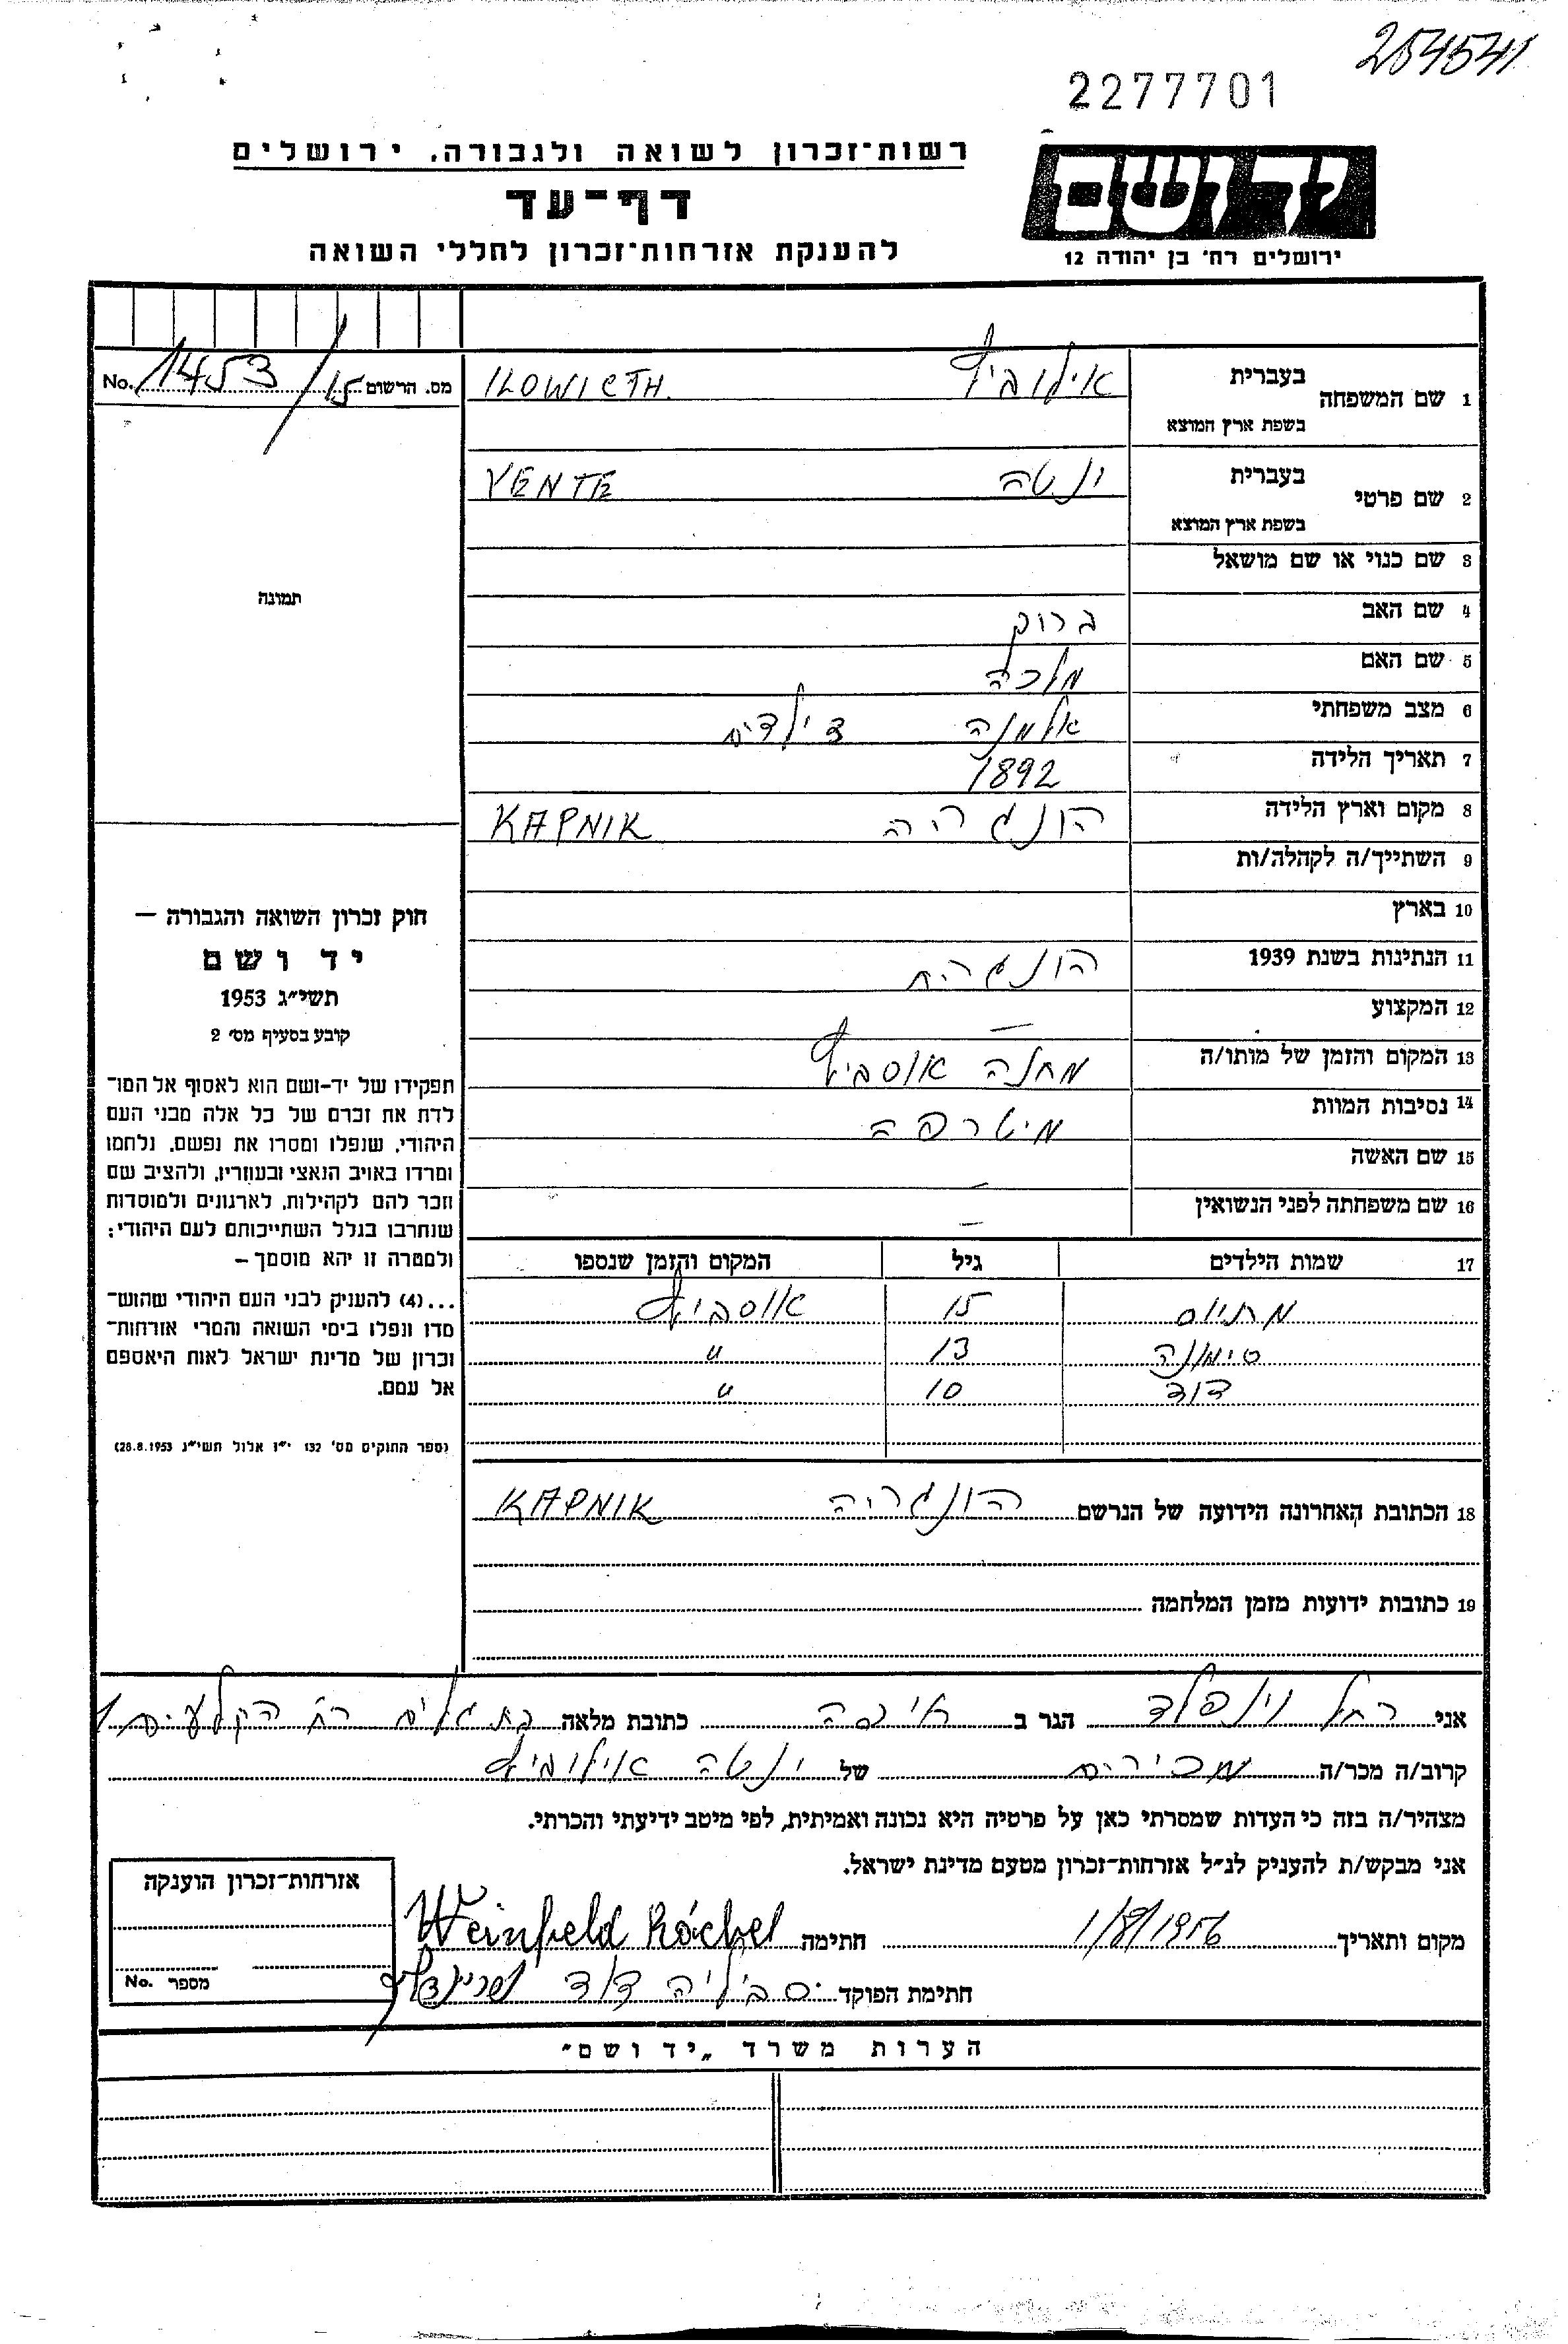 254541
2277701
רשות־זכרון לשואה ולגבורה, ירושלים
דף־עד
להענקת אזרחות־זכרון לחללי השואה
יד ושם
ירושלים רח' בן יהודה 12
No. 1453/15 מס. הרשום
תמונה
חוק זכרון השואה והגבורה —
יד ושם
תשי״ג 1953
קובע בסעיף מס׳ 2
תפקידו של יד־ושם הוא לאסוף אל המו־
לדת את זכרם של כל אלה מבני העם
היהודי, שנפלו ומסרו את נפשם, נלחמו
ומרדו באויב הנאצי ובעוזריו, ולהציב שם
וזכר להם לקהילות, לארגונים ולמוסדות
שנחרבו בגלל השתייכותם לעם היהודי;
ולמטרה זו יהא מוסמך –
...(4) להעניק לבני העם היהודי שהוש־
מדו ונפלו בימי השואה והמרי אזרחות־
זכרון של מדינת ישראל לאות היאספם
אל עמם.
(ספר החוקים מס׳ 132 י״ז אלול תשי״ג 28.8.1953)
1 שם המשפחה בעברית אילוביץ ILOWICTH
בשפת ארץ המוצא
2 שם פרטי בעברית ינטה YENTE
בשפת ארץ המוצא
3 שם כנוי או שם מושאל
4 שם האב ברוך
5 שם האם מלכה
6 מצב משפחתי אלמנה 3 ילדים
7 תאריך הלידה 1892
8 מקום וארץ הלידה הונגריה KAPNIK
9 השתייך/ה לקהלה/ות
10 בארץ
11 הנתינות בשנת 1939 הונגרית
12 המקצוע —
13 המקום והזמן של מותו/ה מחנה אוסביץ
14 נסיבות המוות מיטרפה
15 שם האשה —
16 שם משפחתה לפני הנשואין —
17 שמות הילדים גיל המקום והזמן שנספו
מתיוס 15 אוסביץ
סימונה 13 "
דוד 10 "
18 הכתובת האחרונה הידועה של הנרשם הונגריה KAPNIK
19 כתובות ידועות מזמן המלחמה
אני רחל וינפלד הגר ב חיפה כתובת מלאה בת גלים רח הקלעים 1
קרוב/ה מכר/ה מכירים של ינטה אילוביץ
מצהיר/ה בזה כי העדות שמסרתי כאן על פרטיה היא נכונה ואמיתית, לפי מיטב ידיעתי והכרתי.
אני מבקש/ת להעניק לנ״ל אזרחות־זכרון מטעם מדינת ישראל.
מקום ותאריך 1/8/1956 חתימה Weinfeld Ráchel
חתימת הפוקד סביליה דוד
אזרחות־זכרון הוענקה
מספר No.
הערות משרד „יד ושם״